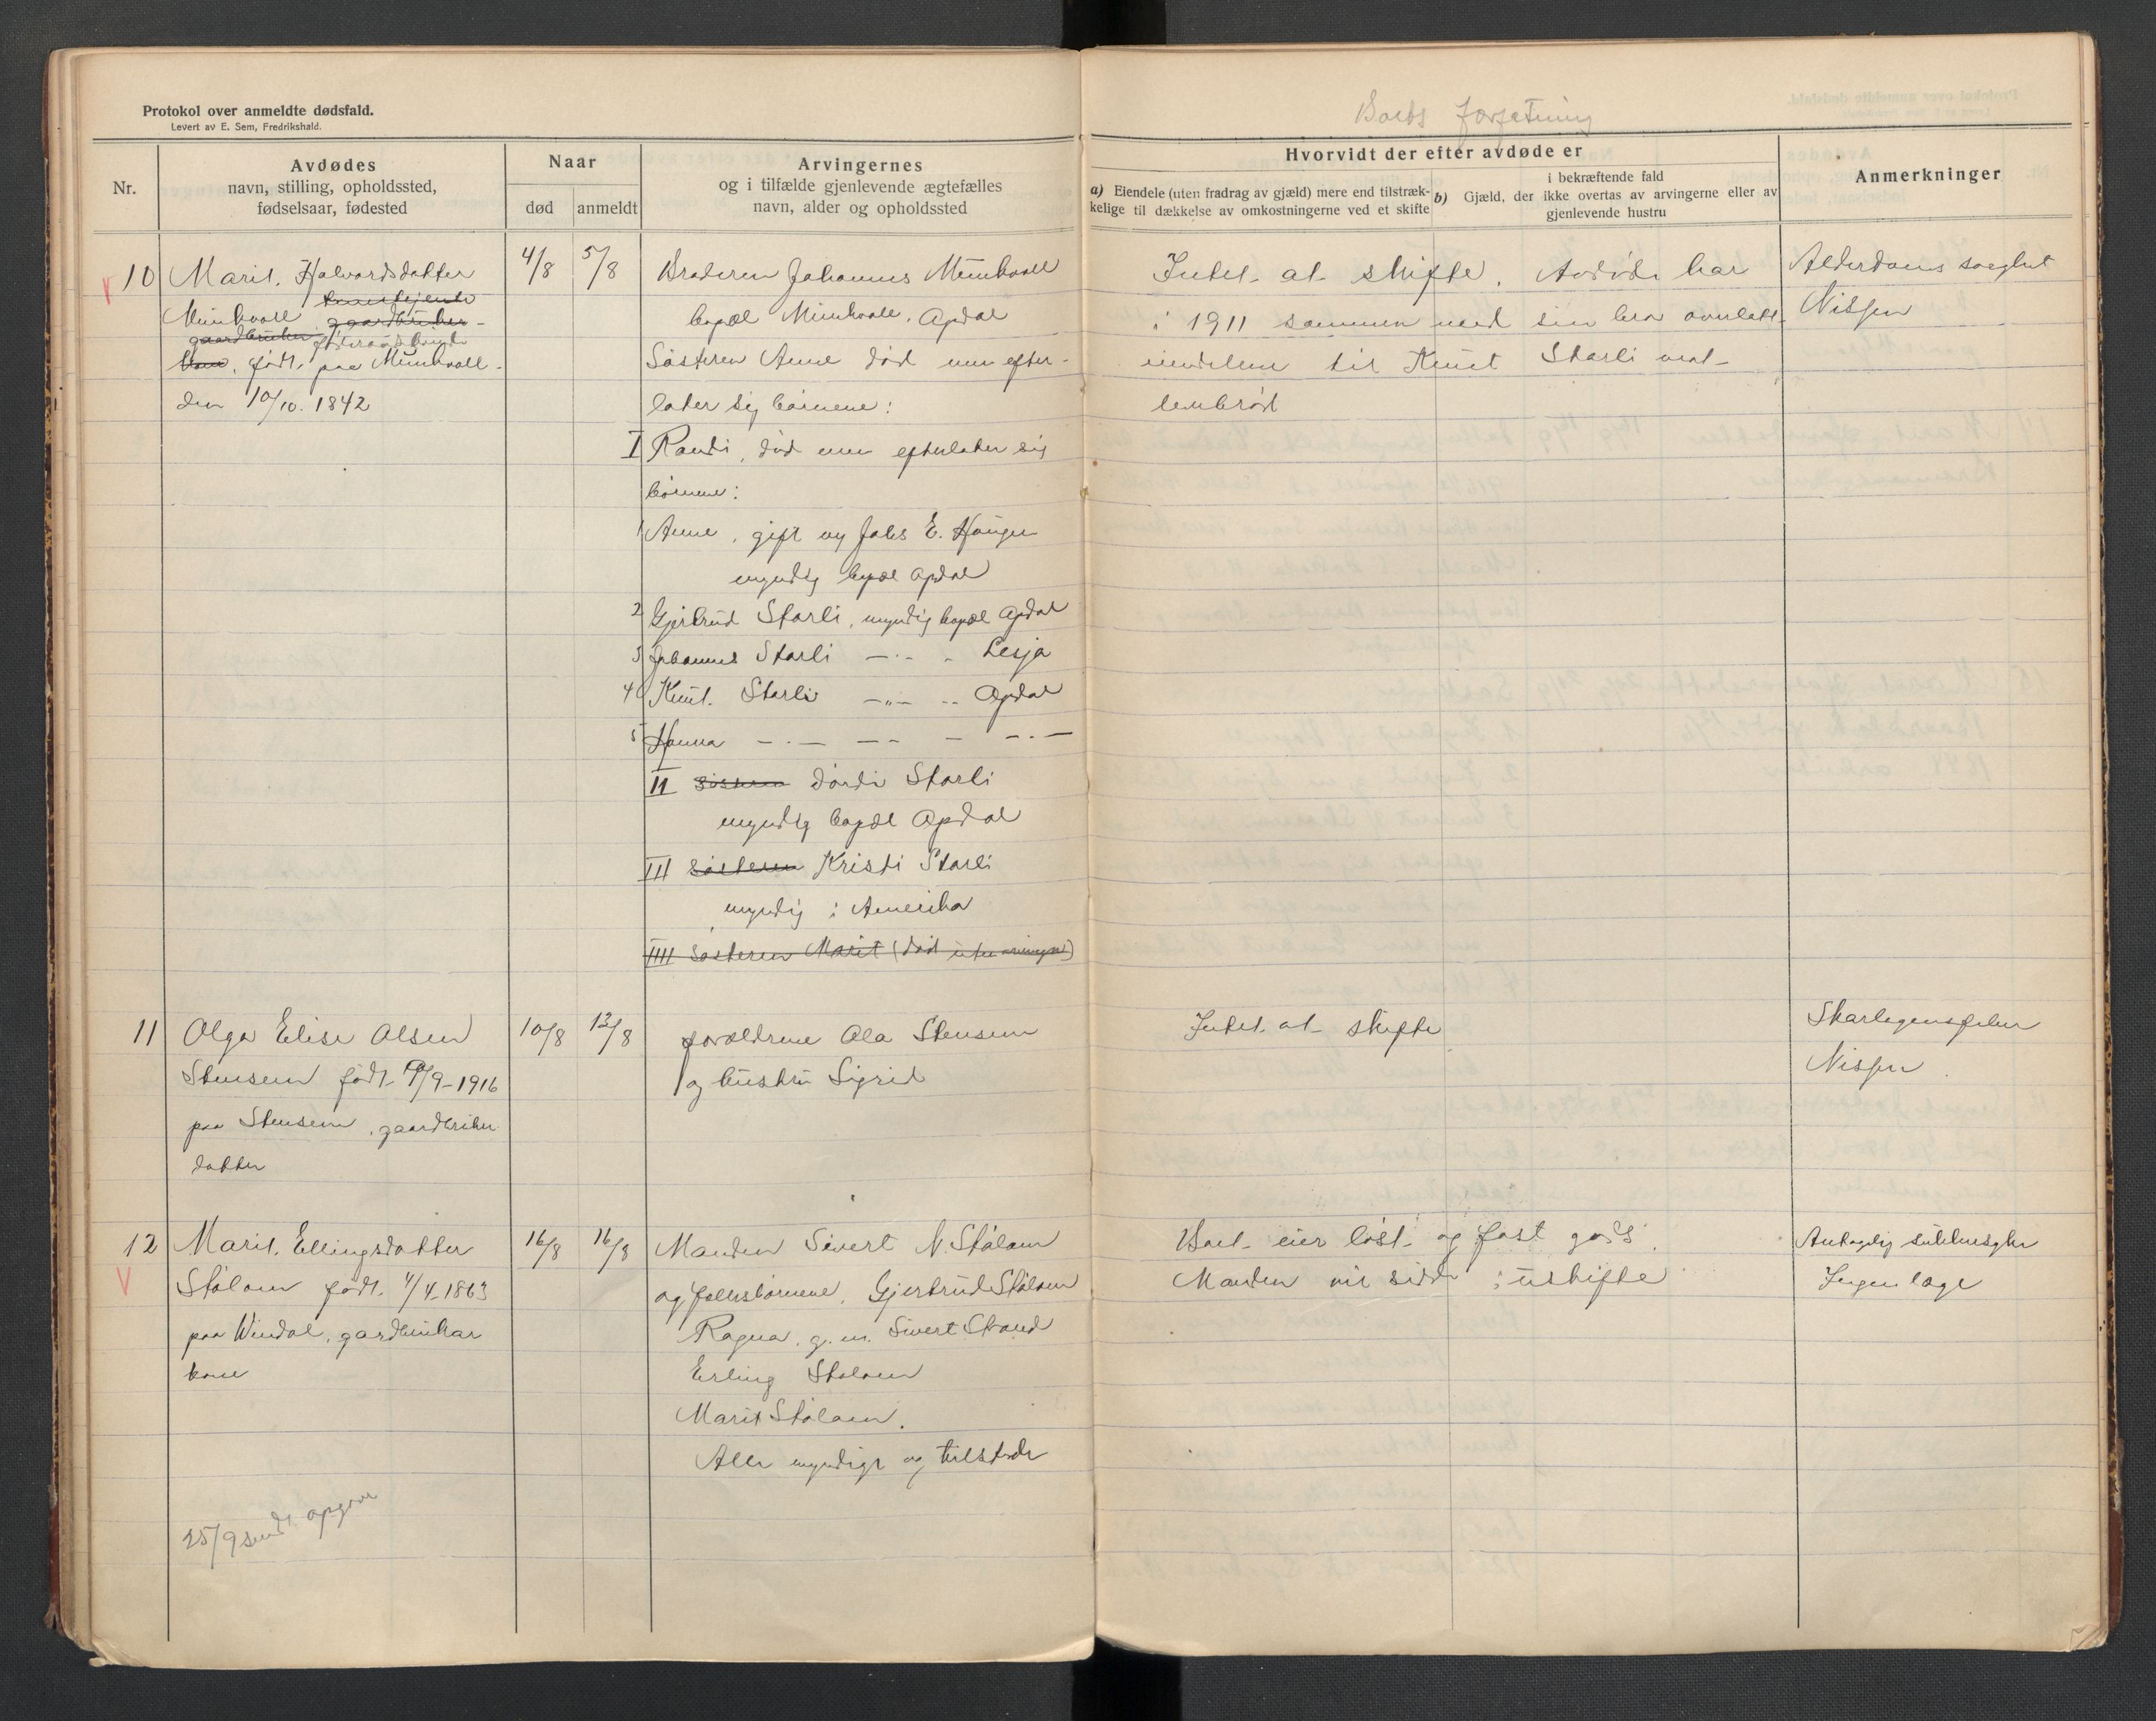 Protokol over anmeldte dødsfald.
Levert av E. Sem, Fredrikshald.
Nr.
Avdødes
navn, stilling, opholdssted,
fødselsaar, fødested
Naar
død
anmeldt
Arvingernes
og i tilfælde gjenlevende ægtefælles
navn, alder og opholdssted
Boets forfatning
Hvorvidt der efter avdøde er
a) Eiendele (uten fradrag av gjæld) mere end tilstræk-
kelige til dækkelse av omkostningerne ved et skifte
b) Gjæld, der i bekræftende fald
ikke overtas av arvingerne eller av
gjenlevende hustru
Anmerkninger
10
Marit Halvordsdatter
Munkvoll gaardbruker
gaardbruker
født paa Munkvoll
den 10/10. 1842
4/8
5/8
Broderen Johannes Munkvoll
bopæl Munkvoll, Opdal
Søsteren Anne død men efter-
later sig børnene:
I Randi, død men efterlater sig
børnene:
1 Anne, gift m/ Johs E. Haugen
myndig bopæl Opdal
2 Gjertrud Starli, myndig bopæl Opdal
3 Johannes Starli — " — Lesja
4 Knut Starli — " — Opdal
5 Hanna — " — — — — " —
II søsteren Dordi Starli
myndig bopæl Opdal
III søsteren Kristi Starli
myndig i Amerika
IIII søsteren Marit (død uten arvinger)
Intet at skifte. Avdøde har
i 1911 sammen med sin bror overlatt
eiendelene til Knut Starli mot
levebrød
Alderdoms svaghet
Nissen
11
Olga Elise Olsen
Stensem født /9-1916
paa Stensem, gaardbruker
datter
10/8
13/8
forældrene Ola Stensem
og hustru Sigrid
Intet at skifte
Skarlagensfeber
Nissen
12
Marit Ellingsdatter
Stølen født 4/4-1863
paa Vindal, gardbrukar
kone
16/8
16/8
Manden Sivert N. Stølen
og fellesbørnene, Gjertrud Stølen
Ragna, g.m. Sivert Strand
Erling Stølen
Marit Stølen.
Alle myndige og tilstede
Boet eier løst og fast gods.
Manden vil sidde i uskifte
Antagelig sukkersyke
Ingen læge
25/9 sendt opgave